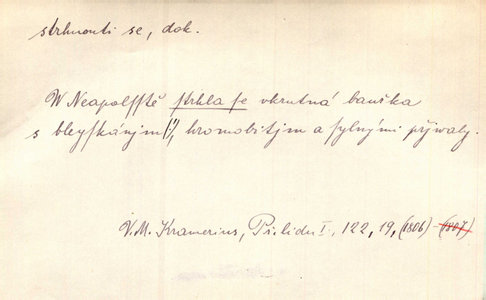 strhnouti se, dok.
W Neapolsstě strhla se vkrutná bauřka
s bleyskánjm(!), hromobitjm a sylnými přjwaly.
V. M. Kramerius, Přilidu I., 122, 19, (1806)-(1807)